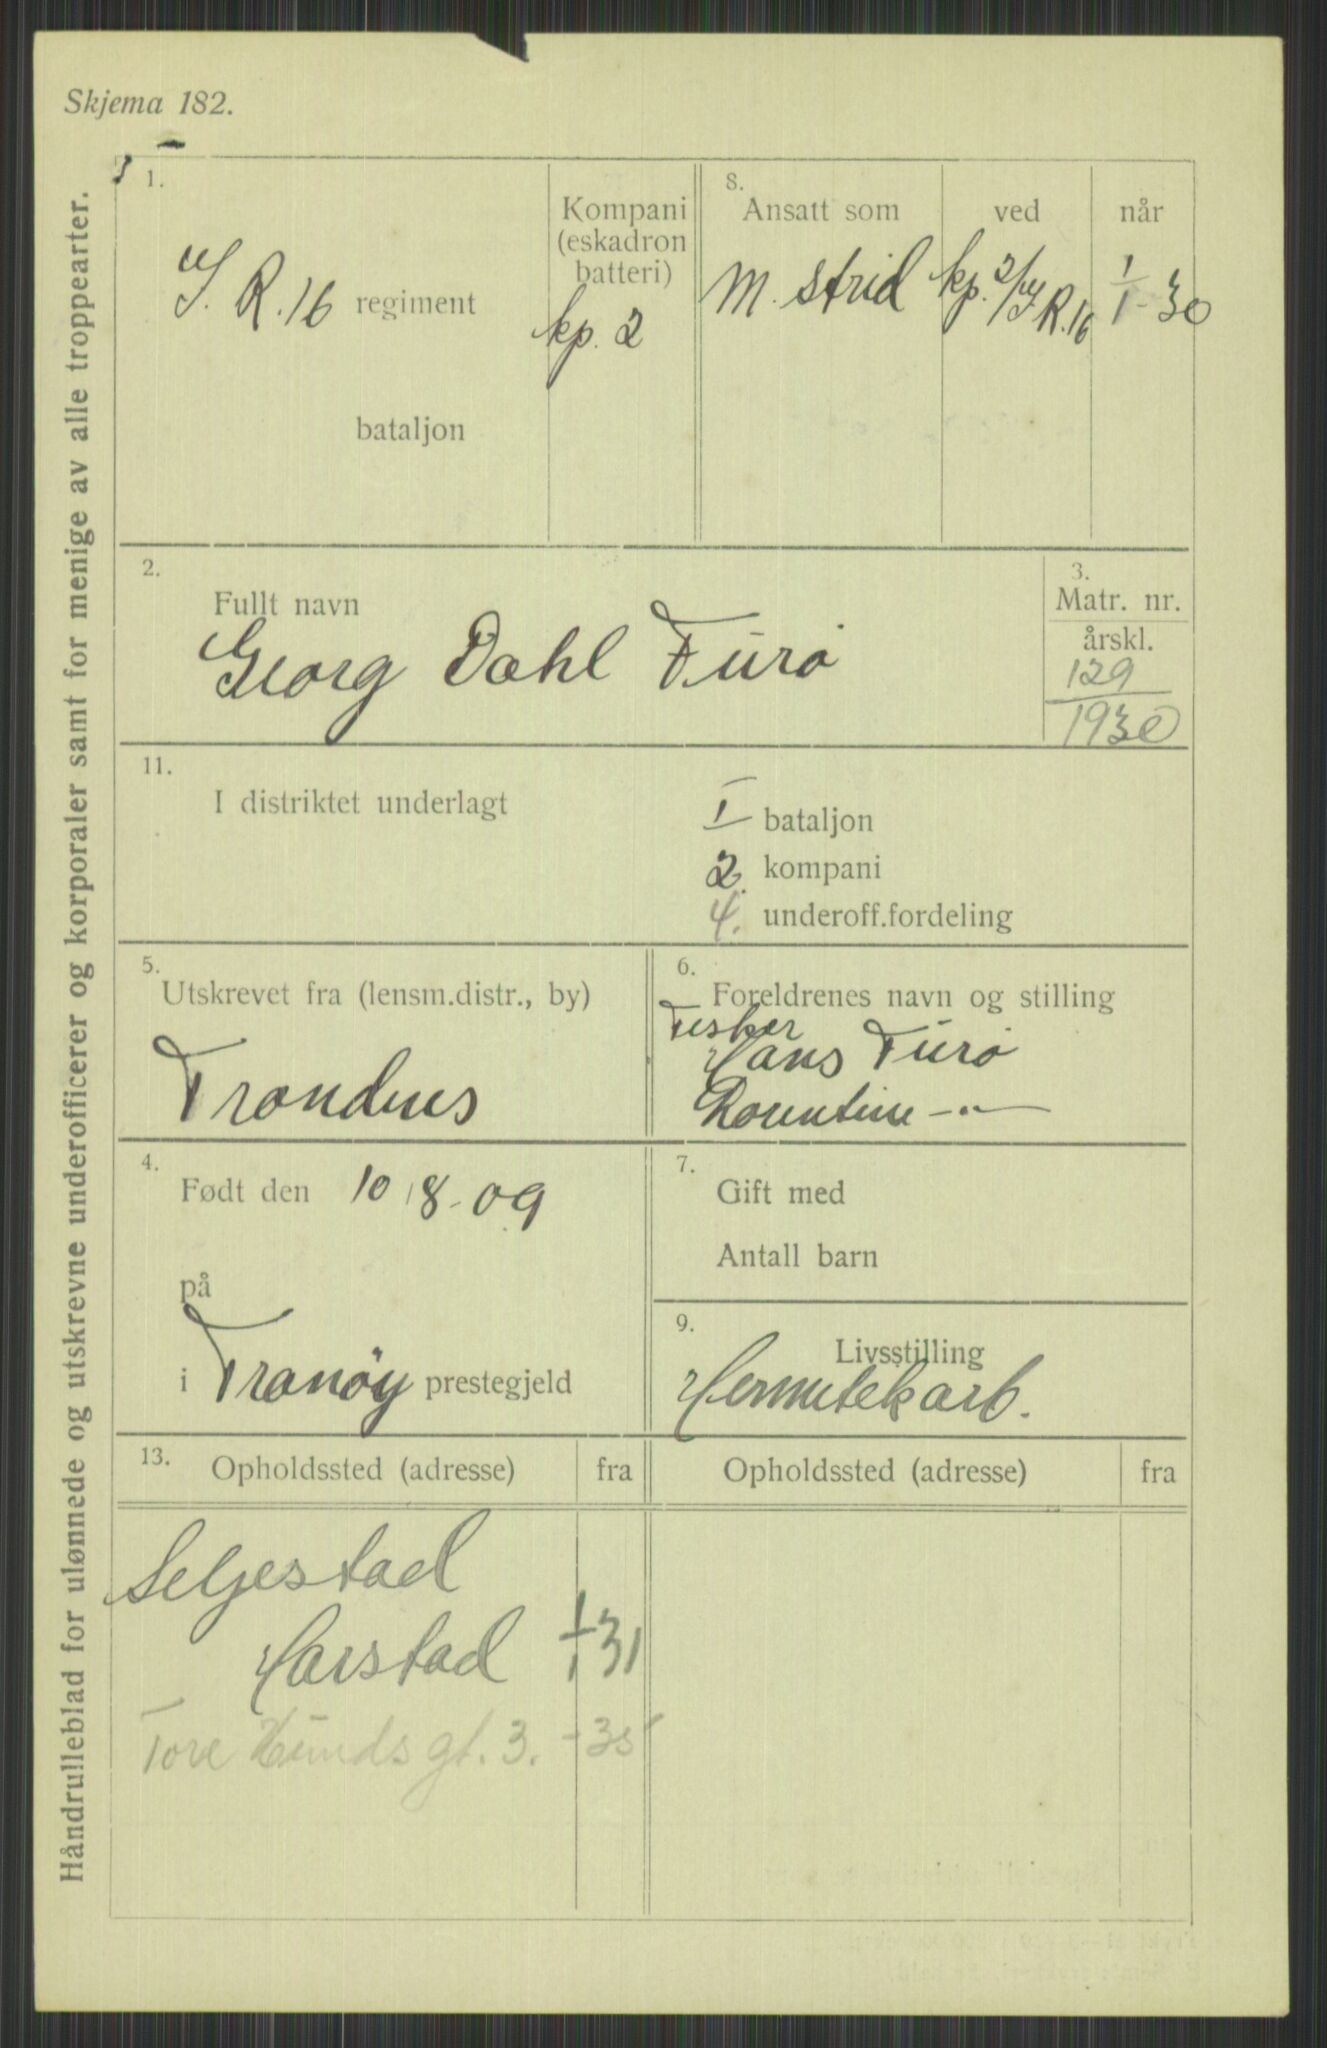 Skjema 182.
Håndrulleblad for ulønnede og utskrevne underofficerer og korporaler samt for menige av alle troppearter.
1.
I. R. 16 regiment
bataljon
Kompani
(eskadron
batteri)
kp. 2
8.
Ansatt som
ved
når
M. strid
kp. 2/I R. 16
1/1-30
2.
Fullt navn
Georg Dahl Furø
3.
Matr. nr.
årskl.
129
1930
11.
I distriktet underlagt
I bataljon
2. kompani
4. underoff.fordeling
5.
Utskrevet fra (lensm.distr., by)
Trondenes
6.
Foreldrenes navn og stilling
Fisker
Hans Furø
-"-
4.
Født den 10/8-09
på
i Tranöy prestegjeld
7.
Gift med
Antall barn
9.
Livsstilling
Hermetekarb.
13.
Opholdssted (adresse)
fra
Opholdssted (adresse)
fra
Seljestad
Harstad 1/1 31
Tore Hunds gt. 3. - 35